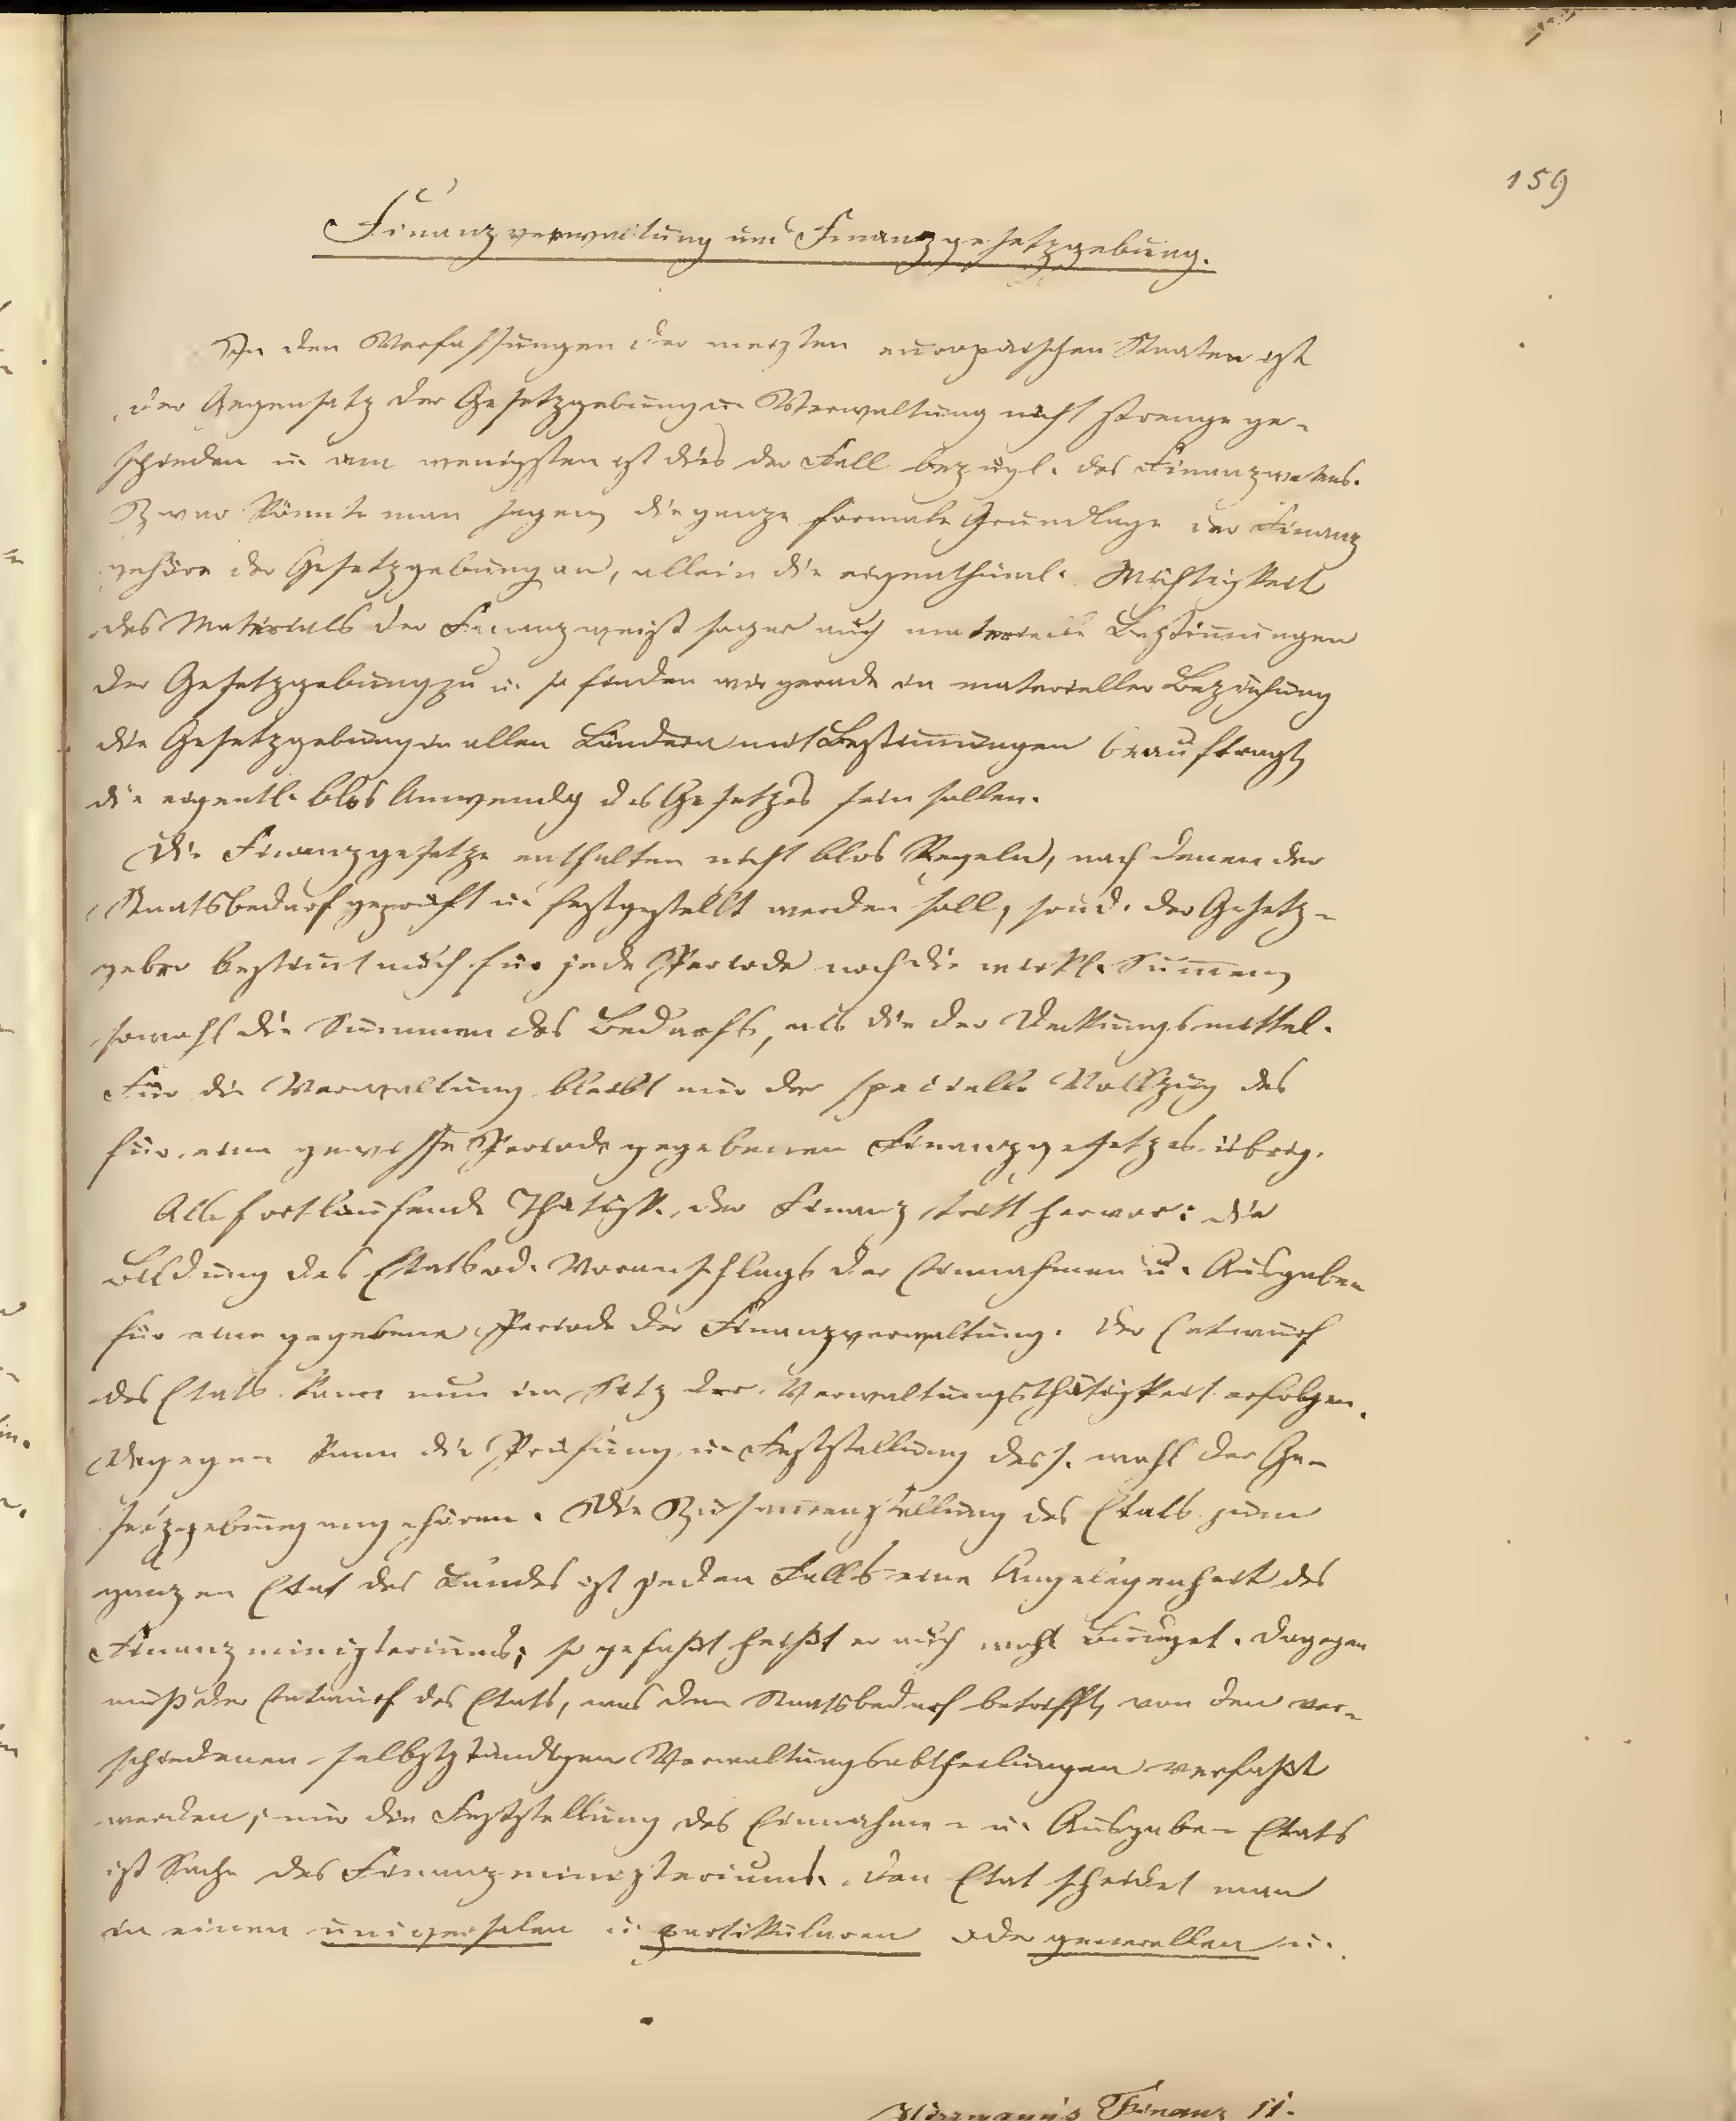 159
Finanzverwaltung und Finanzgesetzgebung.
In den Verfassungen der meisten europäischen Staaten ist
der Gegensatz der Gesetzgebung u. Verwaltung nicht strenge ge-
schieden u. am wenigsten ist dies der Fall bezügl. des Finanzwesens.
Zwar könnte man sagen, die ganze formale Grundlage der Finanz
gehöre der Gesetzgebung an, allein die eigenthüml. Wichtigkeit
des Materials der Finanz weist sogar auch materielle Bestimungen
der Gesetzgebung zu u. so finden wir gerade in materieller Beziehung
die Gesetzgebung in allen Ländern mit Bestimungen beauftragt,
die eigentl. blos Anwendg des Gesetzes sein sollen.
Die Finanzgesetze enthalten nicht blos Regeln, nach denen der
Staatsbedarf geprüft u. festgestellt werden soll, sond. der Gesetz-
geber bestimt auch für jede Periode noch die wirkl. Sumen,
sowohl die Summen des Bedarfs, als die der Deckungsmittel.
Für die Verwaltung bleibt nur der specielle Vollzug des
für eine gewisse Periode gegebenen Finanzgesetzes übrig.
Als fortlaufende Thätigk. der Finanz tritt hervor: die
Bildung des Etats od. Voranschlags der Einnahmen u. Ausgaben
für eine gegebene Periode der Finanzverwaltung. Der Entwurf
des Etats kann nun im Sitz der Verwaltungsthätigkeit erfolgen.
Dagegen kann die Prüfung u. Feststellung dess. wohl der Ge-
setzgebung angehören. Die Zusamenstellung des Etats zum
ganzen Etat des Landes ist jeden Falls eine Angelegenheit des
Finanzministeriums; so gefaßt heißt er auch wohl Budget. Dagegen
muß der Entwurf des Etats, was den Staatsbedarf betrifft, von den ver-
schiedenen selbstständigen Verwaltungsabtheilungen verfaßt
werden; nur die Feststellung des Einnahme- u. Ausgabe-Etats
ist Sache des Finanzministeriums. Den Etat scheidet man
in einen universalen u. partikularen oder generellen u.
Hermann's Finanz II.